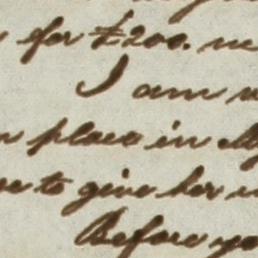 for £200. ne
I am
place in My
to give her
Before yo